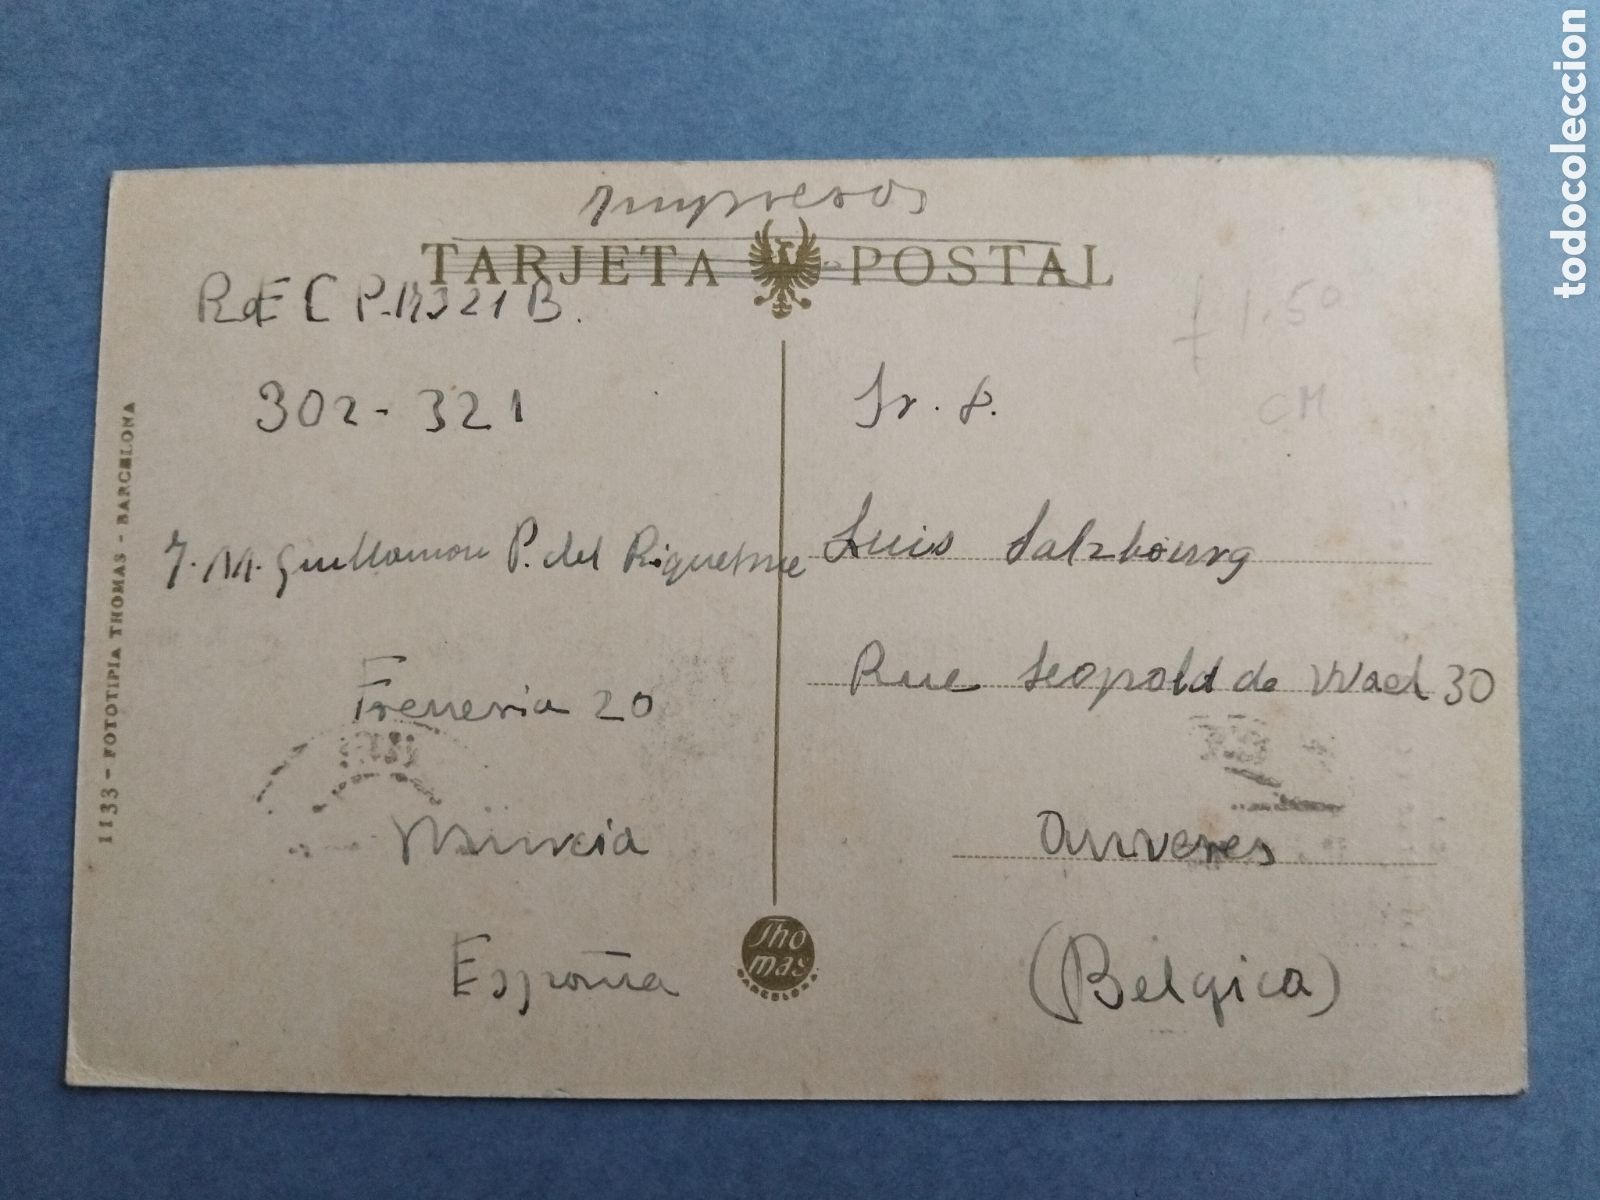 Impresos
TARJETA POSTAL
302-321
1.50
CM
Sr. D.
J. M. Guillamon P. del Riquelme
Luis Salzbourg
Freneria 20
Rue Leopold de Wael 30
Murcia
Anveres
España
(Belgica)
Thomas
BARCELONA
1133 - FOTOTIPIA THOMAS - BARCELONA
todocoleccion